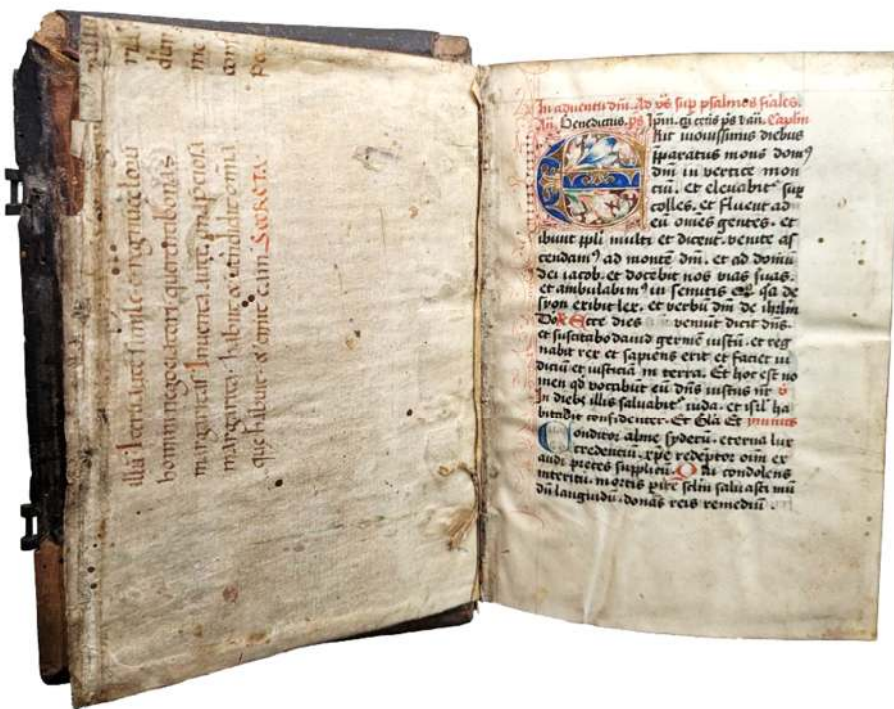 illa. Iterũ. iuxt simile ẽ regnũ celoru
homini negociatori. querenti bonas
margaritas. Inuenta. aute. una preciosa
margarita. habiit & uendidit omnia
que habuit. & emit eam. SECRETA
In adventu dm̃. Ad v̄s sup psalmos fiales.
Añ. Benedictus. ps Ipm̃. cũ cetis ps d añ. Caplm
Erit in novissimis diebus
p̃paratus mons domꝰ
dm̃ in vertice mon
ciũ. et elevabitᵉ sup
colles. et fluent ad
eũ om̃es gentes. et
ibunt ppli multi et dicent. venite as
cendamꝰ ad montẽ dm̃. et ad domũ
dei iacob. et docebit nos vias suas.
et ambulabimꝰ in semitis eiꝰ. qa de
syon exibit lex. et verbũ dm̃ de ihrlm̃
Ecce dies veniũt dicit dñs.
et suscitabo david germẽ iustũ. et reg
nabit rex et sapiens erit et faciet iu
diciũ et iusticiã in terra. Et hoc est no
men qd vocabũt eũ dñs iustus nr̃ v̄
In diebꝫ illis salvabitᵉ iuda. et isrl̃ ha
bitabit confidenter. Et Glã Et ymnus
Conditor alme syderũ. eterna lux
credenciũ. xp̃e redẽptor oim̃ ex
audi preces supplicũ. Qui condolens
interitu. mortis pire sclm̃ salvasti mũ
dũ languidũ. donãs reis remediũ